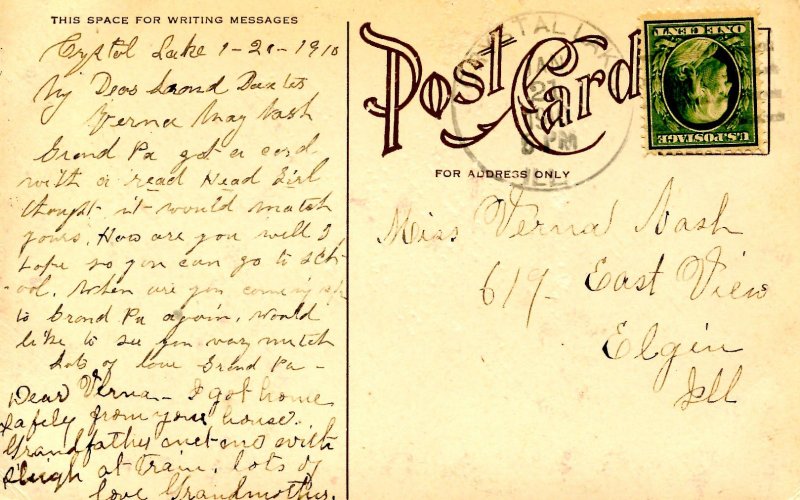 THIS SPACE FOR WRITING MESSAGES
Crystal Lake 1-21-1910
My Dear Grand Daxter
Verna May Nash
Grand Pa got a card
with a read Head Girl
thought it would match
yours. How are you well I
hope so you can go to sch-
ool. When are you coming up
to Grand Pa again, would
like to see you vary mutch
Lots of love Grand Pa -
Dear Verna - I got home
safely from your house.
Grandfather met me with
sleigh at train. lots of
love Grandmother.
Post Card
FOR ADDRESS ONLY
CRYSTAL LAKE
JAN
21
PM
ILL.
ONE CENT
U.S. POSTAGE
Miss Verna Nash
619 - East View
Elgin
Ill